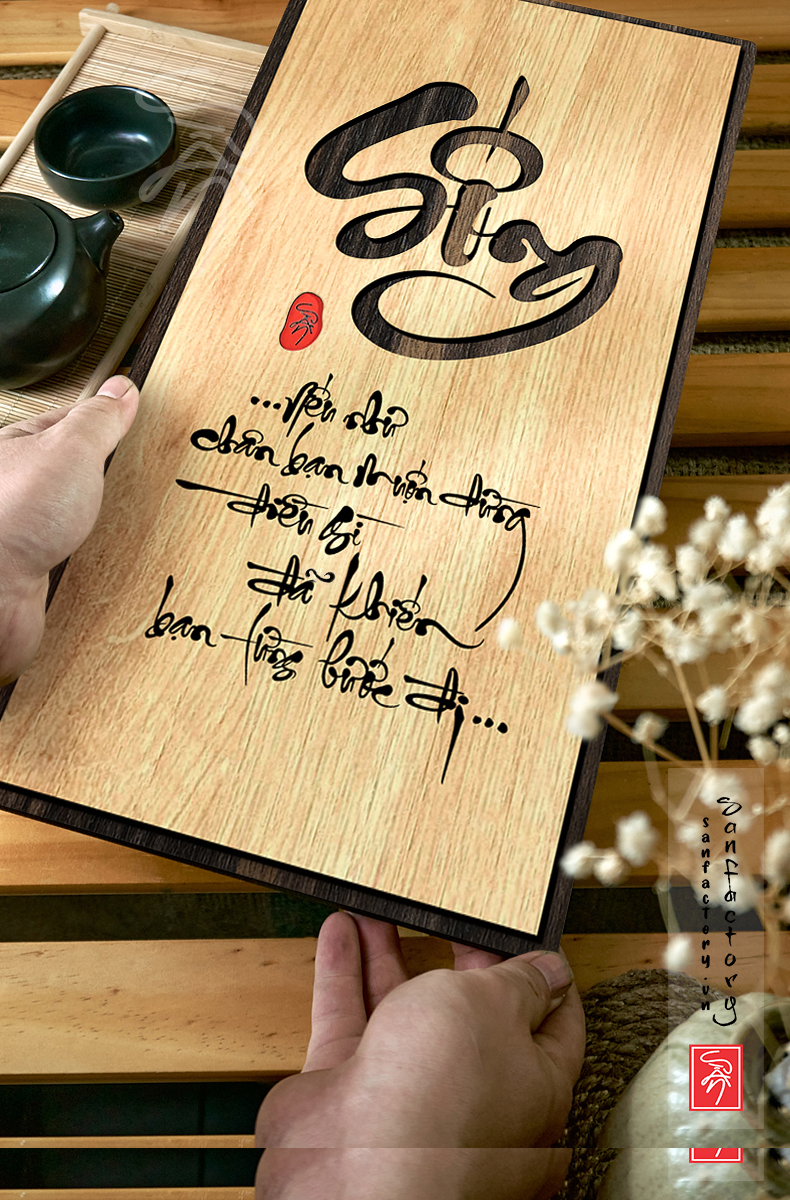 Sống
...Nếu như
chân bạn muốn dừng
điều gì
đã khiến
bạn từng bước đi...
sanfactory.vn
sanfactory